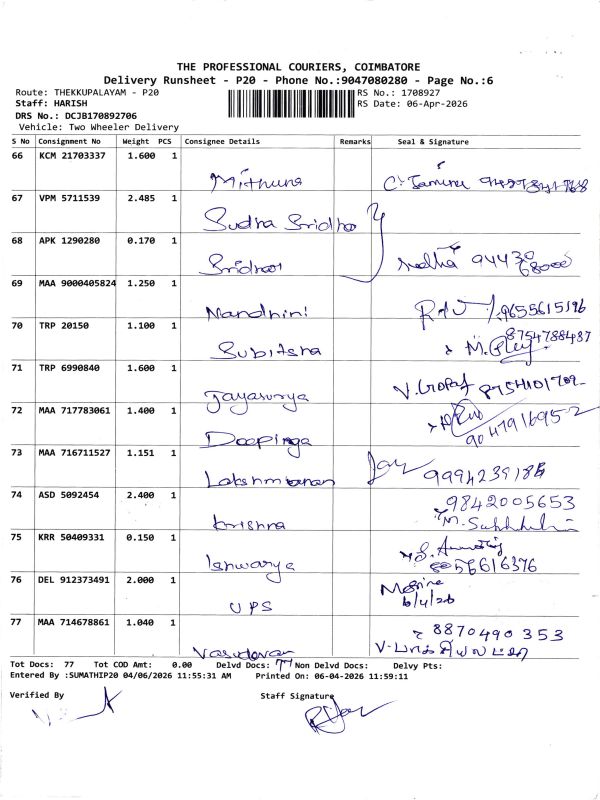 THE PROFESSIONAL COURIERS, COIMBATORE
Delivery Runsheet - P20 - Phone No.:9047080280 - Page No.:6
Route: THEKKUPALAYAM - P20 RS No.: 1708927
Staff: HARISH RS Date: 06-Apr-2026
DRS No.: DCJB170892706
Vehicle: Two Wheeler Delivery
S No Consignment No Weight PCS Consignee Details Remarks Seal & Signature
66 KCM 21703337 1.600 1
Mithuna
67 VPM 5711539 2.485 1
Sudha Sridhar
68 APK 1290280 0.170 1
Sridhar Sudha 94430 68000
69 MAA 9000405824 1.250 1
Nandhini 9655615196
70 TRP 20150 1.100 1
8754788437
Subitsha
71 TRP 6990840 1.600 1
Jayasurya V. Gopal
72 MAA 717783061 1.400 1
Deepinga 9047916952
73 MAA 716711527 1.151 1
Lakshmanan Jay
74 ASD 5092454 2.400 1
9842005653
Krishna
75 KRR 50409331 0.150 1
Ishwarya 8056616376
76 DEL 912373491 2.000 1
UPS 6/4/26
77 MAA 714678861 1.040 1
8870490353
Vasudevan
Tot Docs: 77 Tot COD Amt: 0.00 Delvd Docs: 77 Non Delvd Docs: Delvy Pts:
Entered By :SUMATHIP20 04/06/2026 11:55:31 AM Printed On: 06-04-2026 11:59:11
Verified By Staff Signature